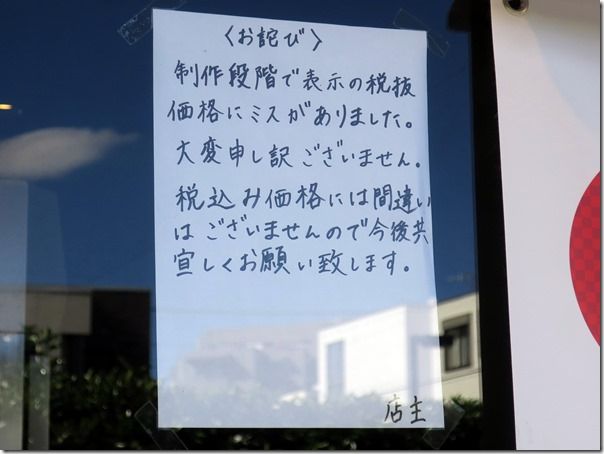 〈お詫び〉
制作段階で表示の税抜
価格にミスがありました。
大変申し訳ございません。
税込み価格には間違い
はございませんので今後共
宜しくお願い致します。
店主